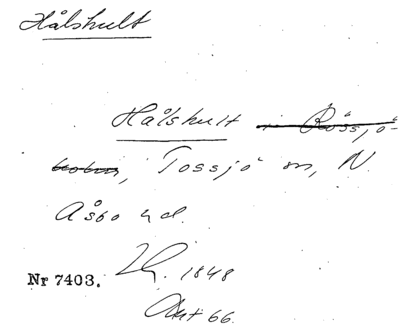 Hålshult
Hålshult i Rössjö-
holm, Tossjö sn, N.
Åsbo hd.
1848
Nr 7403.
Akt 66.